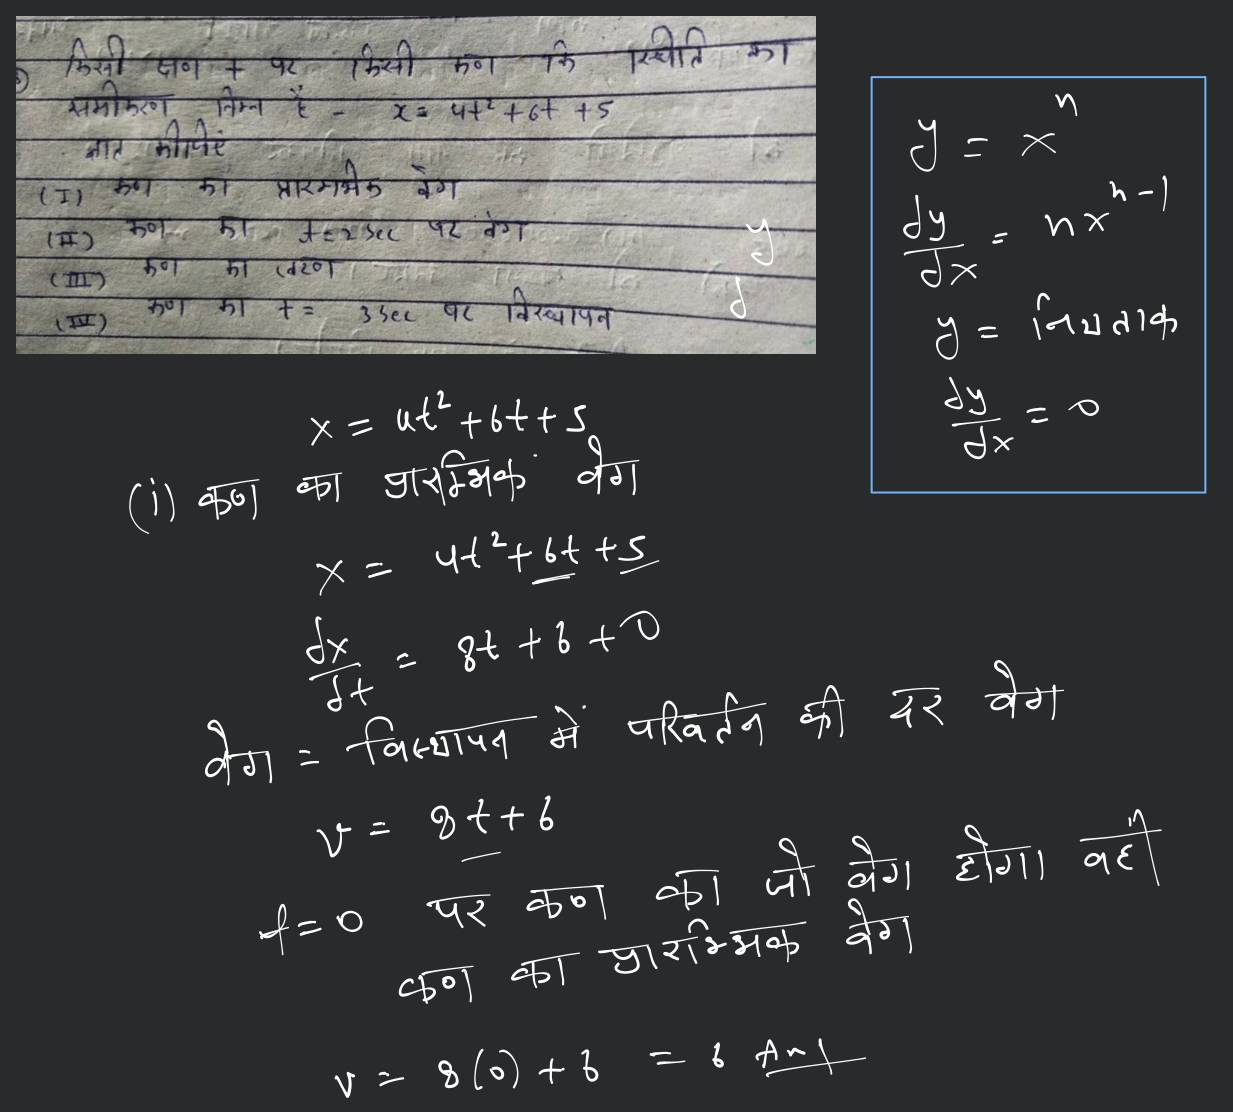 किसी क्षण t पर किसी कण कि स्थिति का
समीकरण निम्न है - x = 4t² + 6t + 5
ज्ञात कीजिए
(I) कण का प्रारम्भिक वेग
(II) कण का t=2 sec पर वेग
(III) कण का त्वरण
(IV) कण का t = 3 sec पर विस्थापन
y
d
y = xⁿ
dy/dx = nxⁿ⁻¹
y = नियतांक
dy/dx = 0
x = 4t² + 6t + 5
(i) कण का प्रारम्भिक वेग
x = 4t² + 6t + 5
dx/dt = 8t + 6 + 0
वेग = विस्थापन में परिवर्तन की दर वेग
v = 8t + 6
t = 0 पर कण का जो वेग होगा वही
कण का प्रारम्भिक वेग
v = 8(0) + 6 = 6 Ans